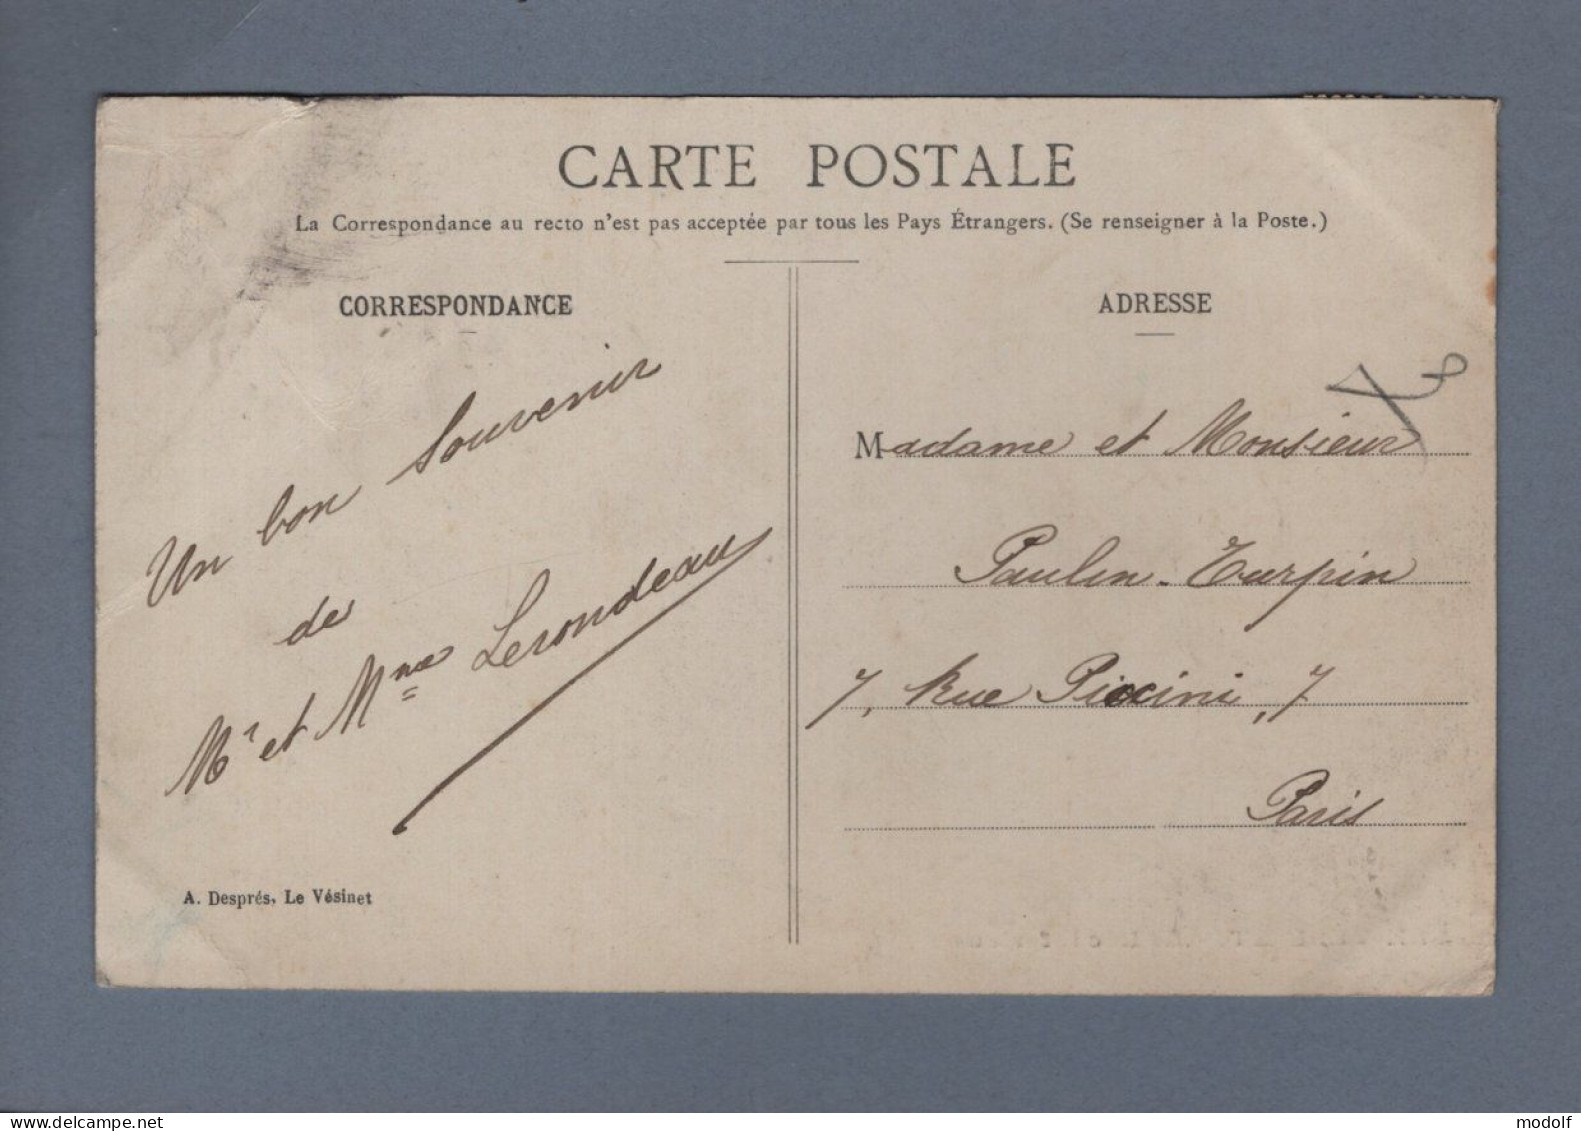 CARTE POSTALE
La Correspondance au recto n'est pas acceptée par tous les Pays Étrangers. (Se renseigner à la Poste.)
CORRESPONDANCE
Un bon souvenir
de
Mr et Mme Lerondeau
A. Després, Le Vésinet
ADRESSE
Madame et Monsieur
Paulin-Turpin
7, Rue Piccini, 7
Paris
modolf